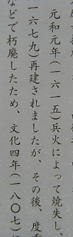 元和元年(一六一五)兵火によって焼失し、
一六七九)再建されましたが、その後、度
などで朽廃したため、文化四年(一八〇七)